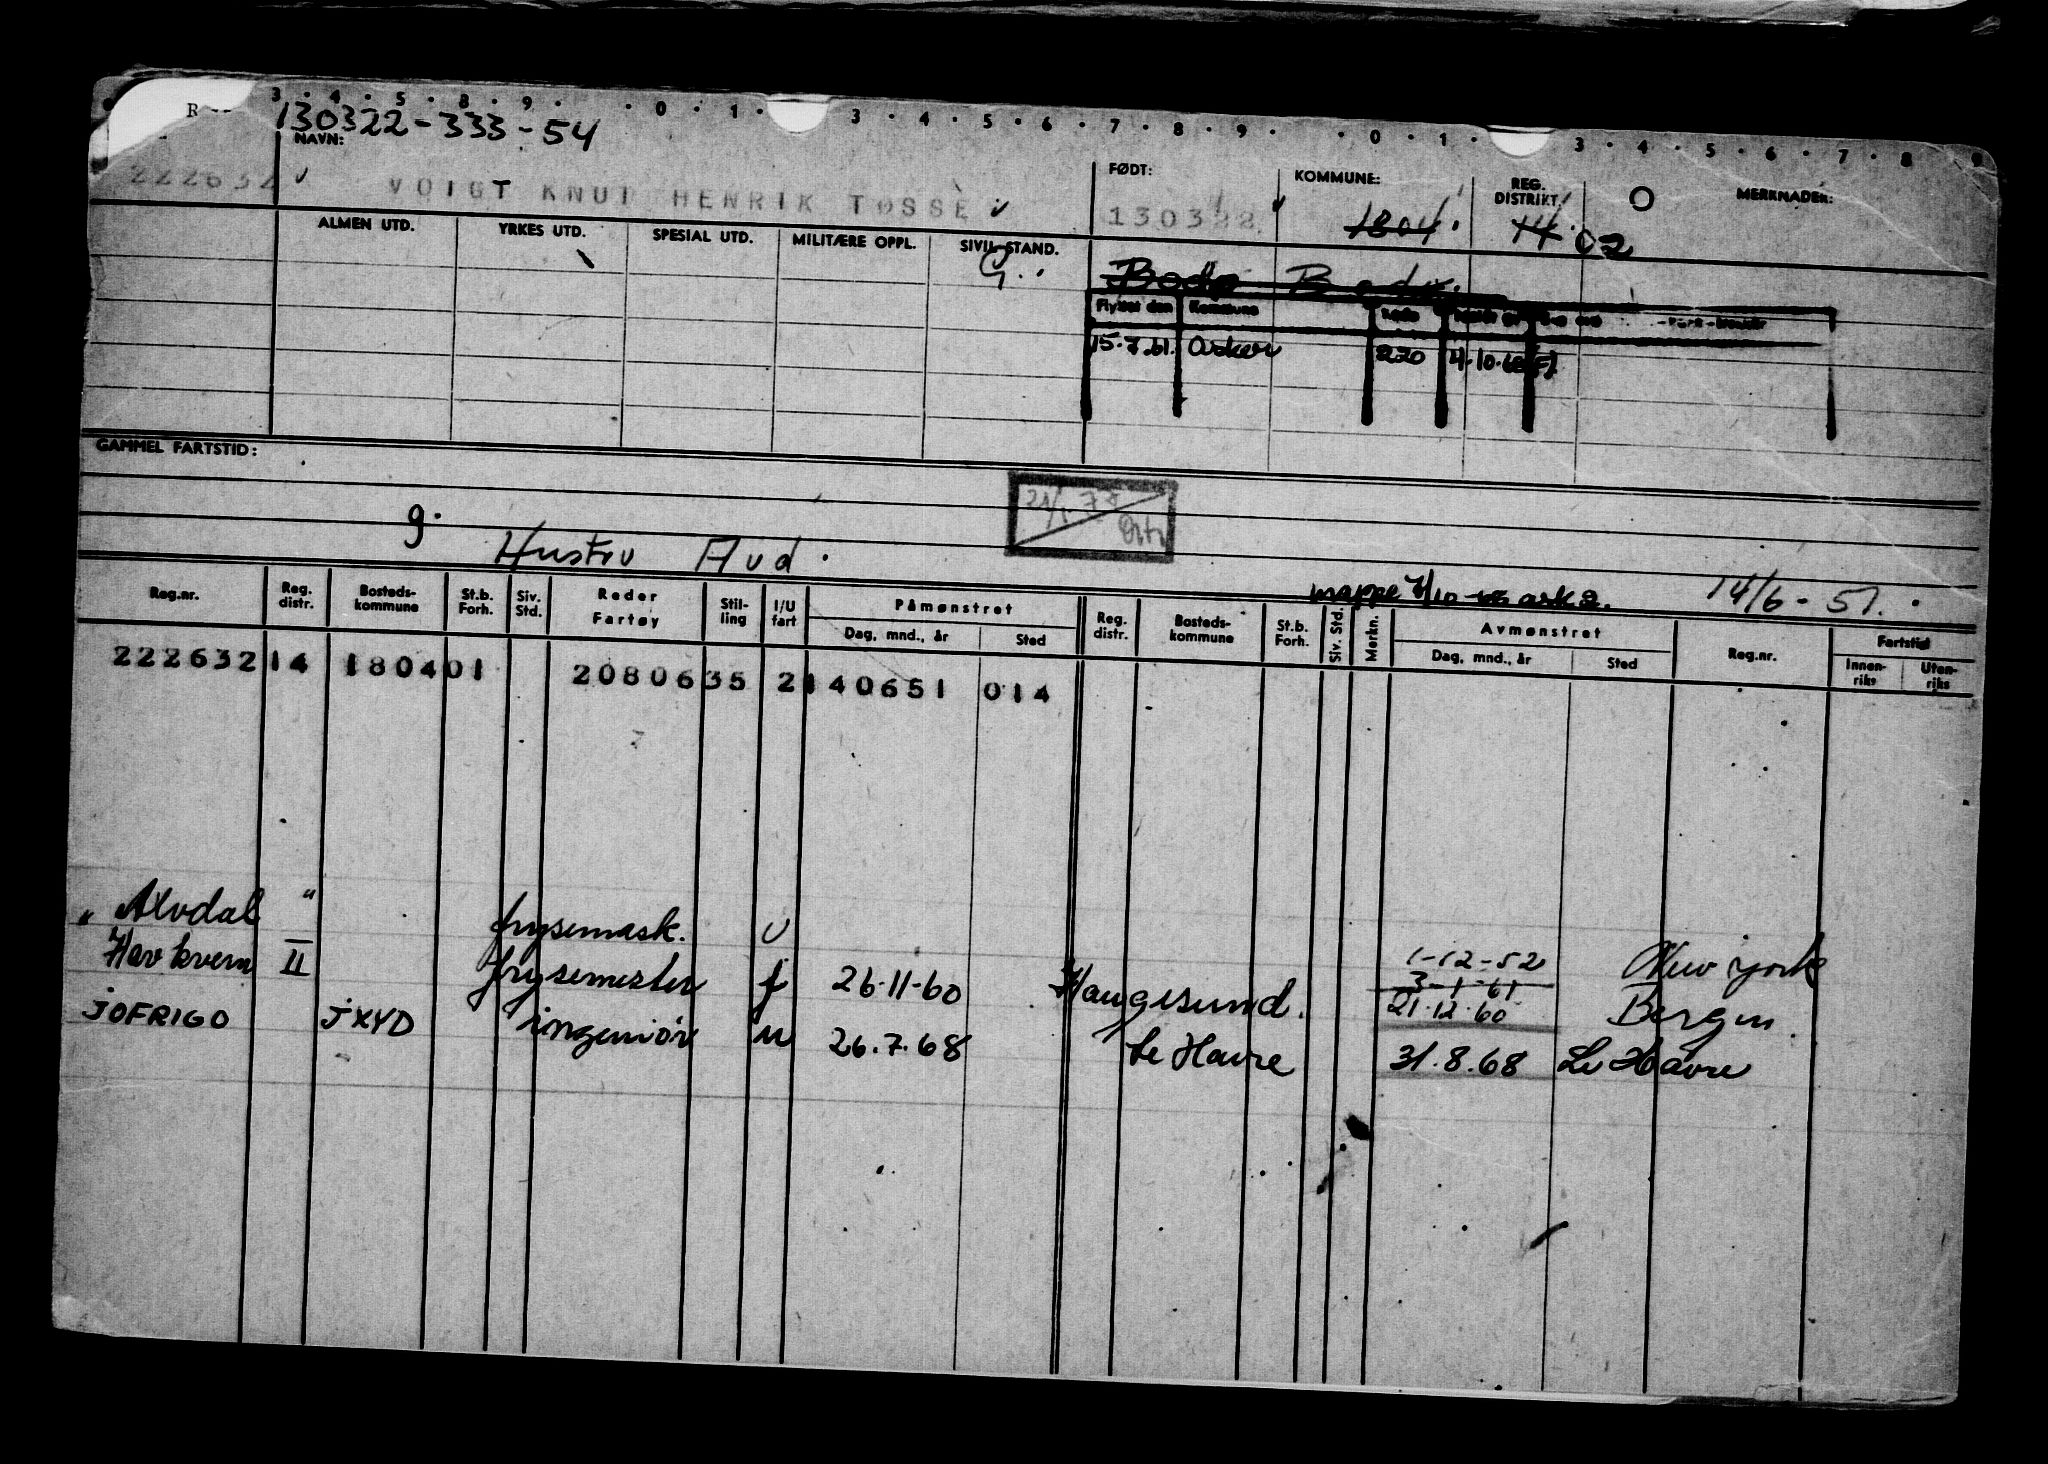 R
3 . 4 . 5 . 8 . 9 . . 0 . 1 . 3 . 4 . 5 . 6 . 7 . 8 . 9 . . 0 . 1 . 3 . 4 . 5 . 6 . 7 . 8 9
130322-333-54
NAVN: FØDT: KOMMUNE: REG. DISTRIKT MERKNADER:
222632 VOIGT KNUT HENRIK TØSSE 130322 1804 14 02
ALMEN UTD. YRKES UTD. SPESIAL UTD. MILITÆRE OPPL. SIVIL STAND.
G. Bodø Bodø
Flyttet den Kommune Kode
15.7.61 Asker 220 4.10.68
GAMMEL FARTSTID:
21/1.75
g. Hustru Aud.
mappe 14/6-51.
Reg.nr. Reg. distr. Bosteds- kommune St.b. Forh. Siv. Std. Reder Fartøy Stil- ling I/U fart Påmønstret Dag, mnd., år Sted Reg. distr. Bosteds- kommune St.b. Forh. Siv. Std. Merkn. Avmønstret Dag, mnd., år Sted Reg.nr. Fartstid Innen- riks Uten- riks
222632 14 1804 01 20806 35 2 140651 014
" Alvdal " frysemask. u 1-12-52 New York
Havkvern II frysemester f 26-11-60 Haugesund. 3-1-61 21.12.60 Bergen.
JOFRIGO JXYD ingeniør u 26.7.68 Le Havre 31.8.68 Le Havre